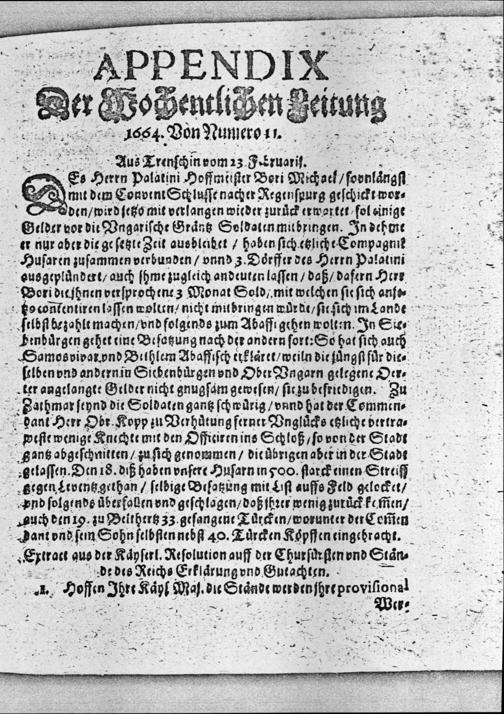 APPENDIX
Der Wochentlichen Zeitung
1664. Von Numero 11.
Aus Trenschin vom 23. Februarij.
DEs Herrn Palatini Hoffmeister Bori Michael / so vnlängst
mit dem Convent Schlusse nacher Regenspurg geschickt wor-
den / wird jetzo mit verlangen wieder zurück erwartet / sol einige
Gelder vor die Vngarische Gräntz Soldaten mitbringen. In deh me
er nur aber die gesetzte Zeit ausbleibet / haben sich etzliche Compagnik
Husaren zusammen verbunden / vnnd 3. Dörffer des Herrn Palatini
ausgeplündert / auch jhme zugleich andeuten lassen / daß / dafern Herr
Bori die jhnen versprochene 3 Monat Sold / mit welchen sie sich anje-
tzo contentiren lassen wolten / nicht mitbringen würde / sie sich im Lande
selbst bezahlt machen / vnd folgends zum Abaffi gehen wolten. In Sie-
benbürgen gehet eine Besatzung nach der andern fort: So hat sich auch
Samosvivar vnd Bethlem Abaffisch erkläret / weiln die jüngst für die-
selben vnd andern in Siebenbürgen vnd Ober Vngarn gelegene Oer-
ter angelangte Gelder nicht gnugsam gewesen / sie zu befriedigen. Zu
Zathmar seynd die Soldaten gantz schwürig / vnnd hat der Commen-
dant Herr Obr. Kopp zu Verhütung ferner Vnglücks etzliche vertra-
weste wenige Knechte mit den Officiren ins Schloß / so von der Stadt
gantz abgeschnitten / zu sich genommen / die übrigen aber in der Stadt
gelassen. Den 18. diß haben vnsere Husarn in 500. starck einen Streiff
gegen Leventz gethan / selbige Besatzung mit List auffs Feld gelocket /
vnd folgends überfallen vnd geschlagen / daß jhrer wenig zurück kom̃en /
auch den 19. zu Neithertz 33. gefangene Türcken / worunter der Com̃en
dant vnd sein Sohn selbsten nebst 40. Türcken Köpffen eingebracht.
Extract aus der Käyserl. Resolution auff der Churfürsten vnd Stän-
de des Reichs Erklärung vnd Gutachten.
1. Hoffen Jhre Käys. Maj. die Stände werden jhre provisional
Wer-